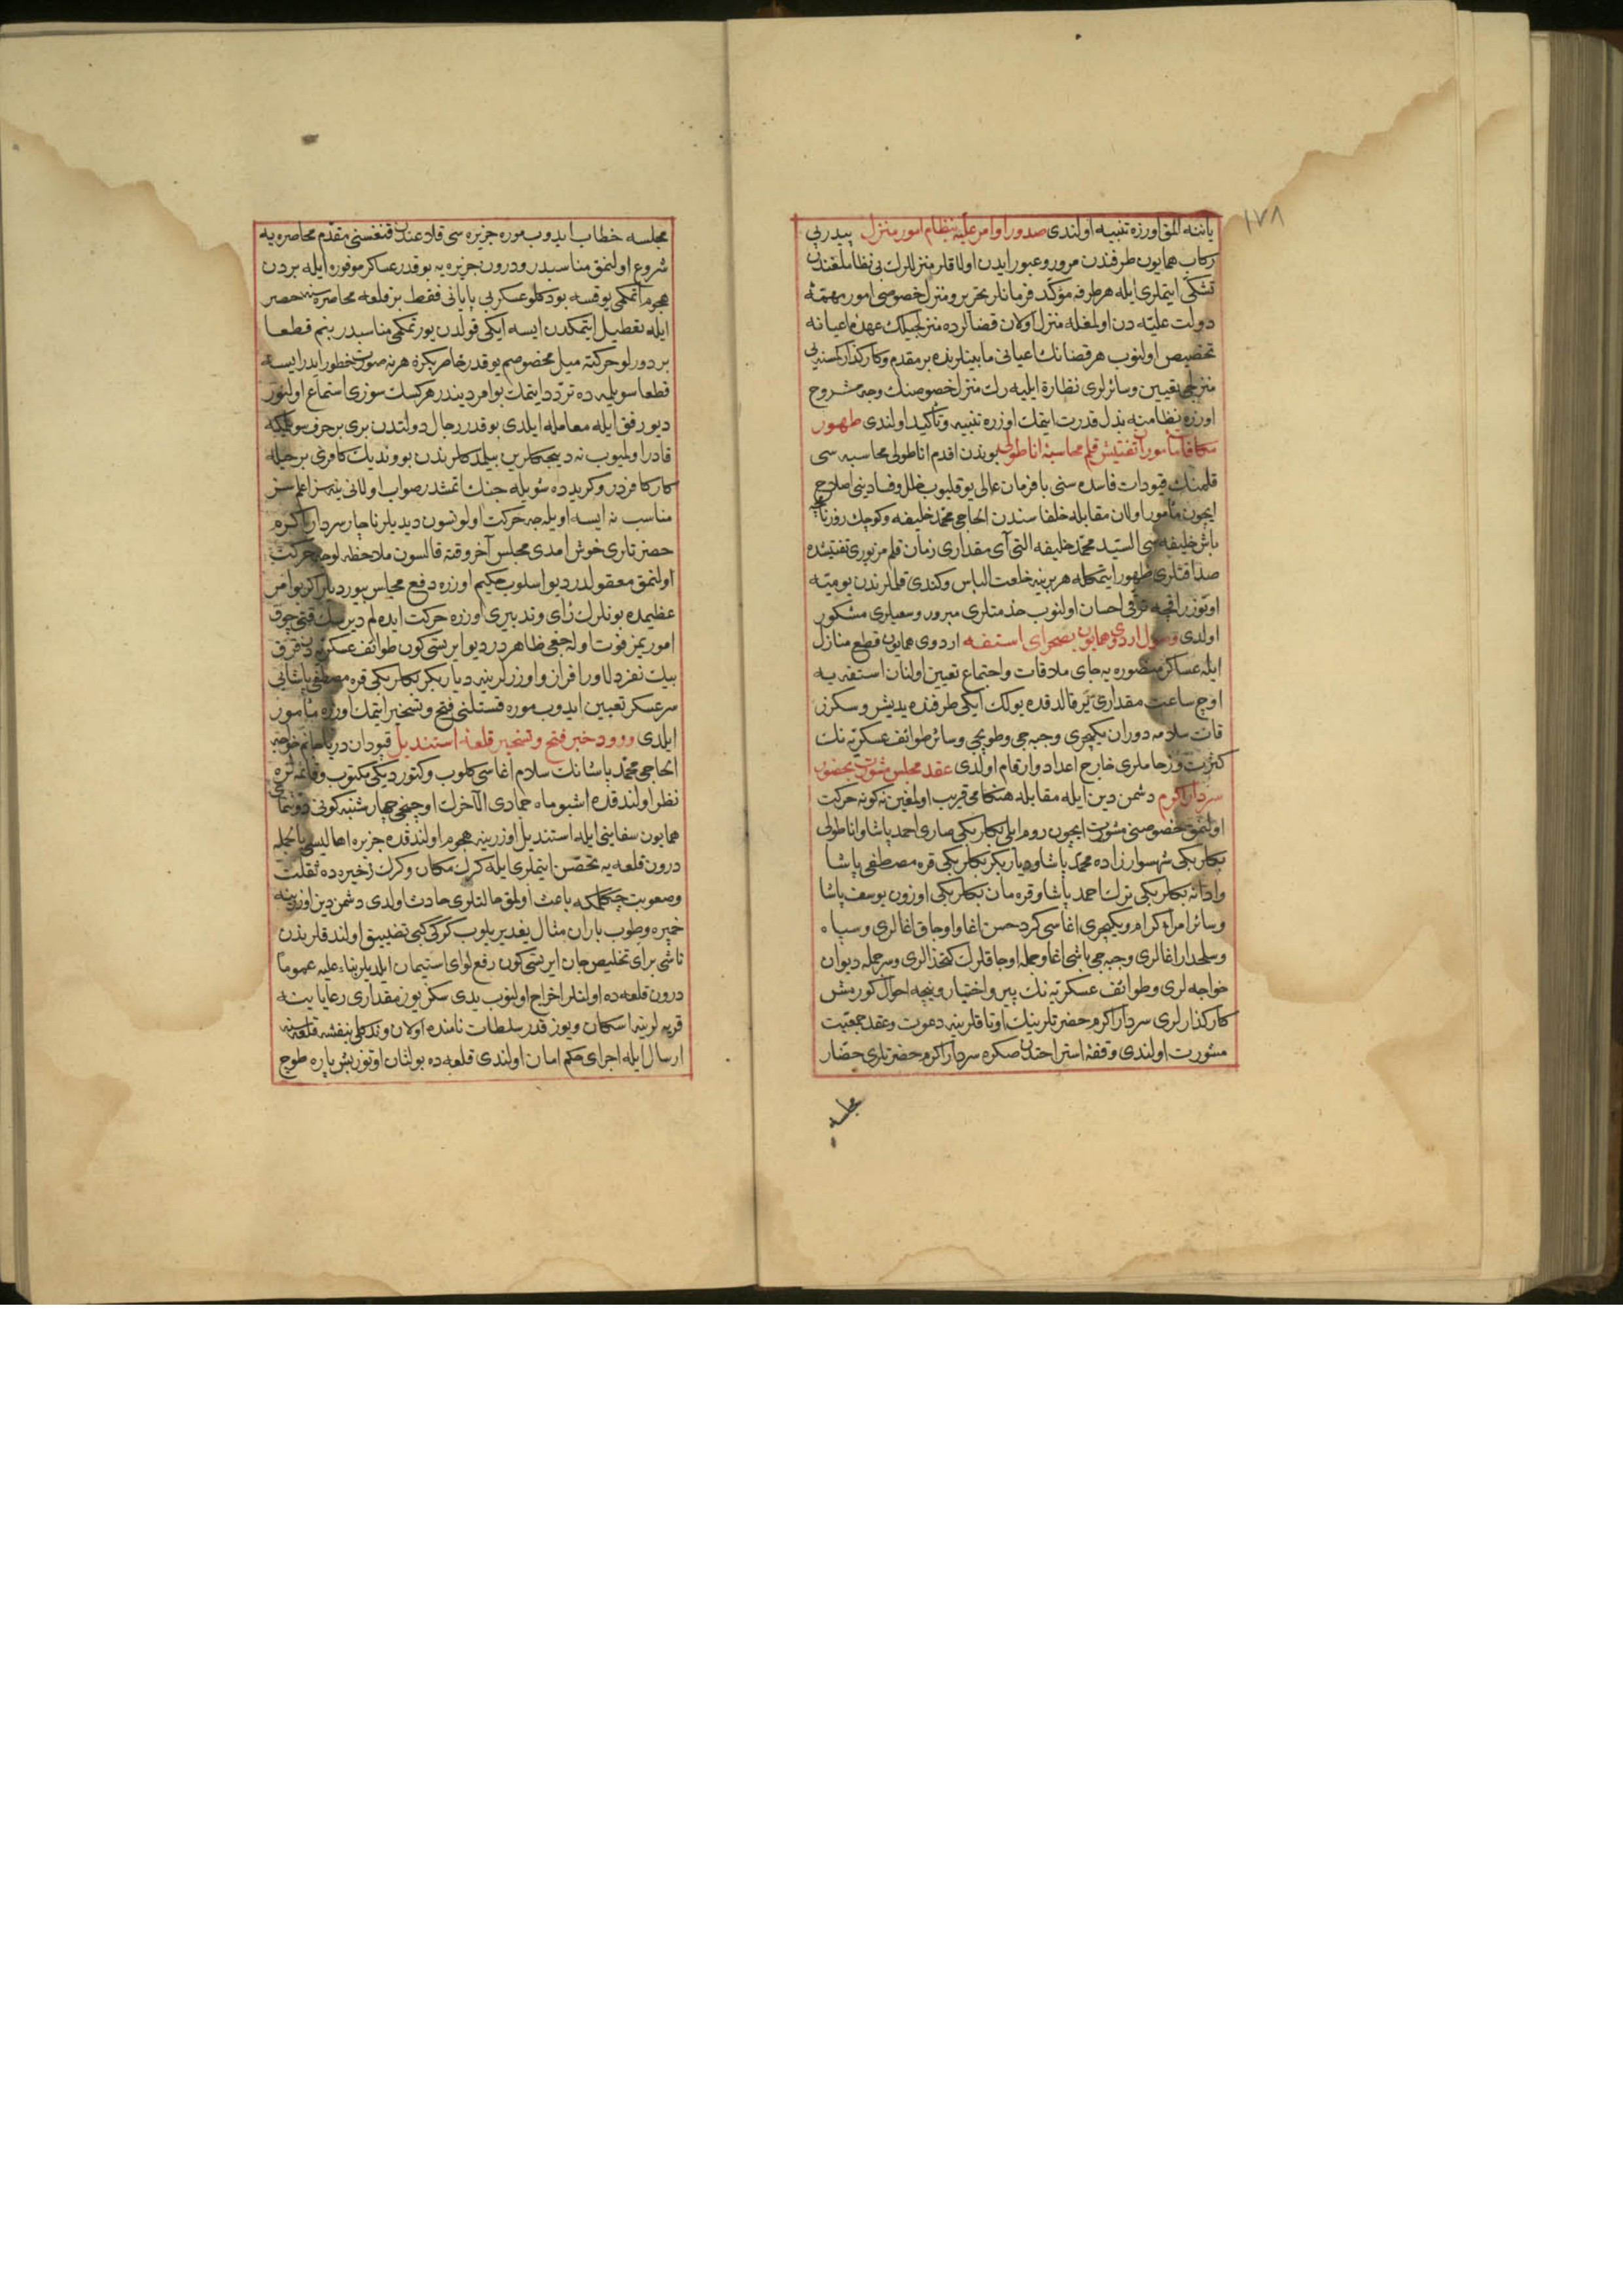 ١٧٨
ياننه المق اوزره تنبيه اولندى صدور اوامر عليه بنظام امور منزل پيدرپى
ركاب همايون طرفندن مرور وعبور ايدن اولاقلر منزللرك بى نظاملغندن
تشكى ايتملرى ايله هر طرفه مؤكد فرمانلر تحرير و منزل خصوصى امور مهمهٔ
دولت عليه دن اولمغله منزل اولان قضالرده منزلجيلك عهدهٔ اعيانه
تخصيص اولنوب هر قضانك اعيانى مابينلرنده بر مقدم وكاركذار كمسنه يى
منزلجى تعيين وسائرلرى نظارة ايليه رك منزل خصوصنك وجه مشروح
اوزره نظامنه بذل قدرت ايتمك اوزره تنبيه وتأكيد اولندى ظهور
مكافات مأموران تفتيش قلم محاسبهٔ اناطولى بوندن اقدم اناطولى محاسبه سى
قلمنك قيودات فاسده سنى با فرمان عالى يوقليوب خلل وفسادينى اصلاح
ايچون مأمور اولان مقابله خلفاسندن الحاجى محمد خليفه وكوچك روزنامچه
باش خليفه سى السيد محمد خليفه التى آى مقدارى زمان قلم مزبورى تفتيشده
صداقتلرى ظهور ايتمكله هر برينه خلعت الباس وكندى قلملرندن يوميه
اوتوزر اقچه ترقى احسان اولنوب خدمتلرى مبرور وسعيلرى مشكور
اولدى وصول اردوى همايون بصحراى استفه اردوى همايون قطع منازل
ايله عساكر منصوره يه جاى ملاقات واجتماع تعيين اولنان استفه يه
اوچ ساعت مقدارى ير قالدقده يولك ايكى طرفنده يديشر وسكزر
قات سلامه دوران يكيچرى وجبه جى وطوپجى وسائر طوائف عسكريه نك
كثرت وزحاملرى خارج اعداد وارقام اولدى عقد مجلس مشورت بحضور
سردار اكرم دشمن دين ايله مقابله هنكامى قريب اولمغين نه كونه حركت
اولنمق خصوصنى مشورت ايچون روم ايلى بكلربكى صارى احمد پاشا واناطولى
بكلربكى شهسوار زاده محمد پاشا وديار بكر بكلربكى قره مصطفى پاشا
وادانه بكلربكى ترك احمد پاشا وقره مان بكلربكى اوزون يوسف پاشا
وسائر امراء كرام ويكيچرى اغاسى كرد حسن اغا واوجاق اغالرى وسپاه
وسلحدار اغالرى وجبه جى باشى اغا وجمله اوجاقلرك كتخدالرى وسر جمله ديوان
خواجه لرى وطوائف عسكريه نك پير واختيار ونيجه احوال كورمش
كاركذارلرى سردار اكرم حضرتلرينك اوتاقلرينه دعوت وعقد جمعيت
مشورت اولندى وقفهٔ استراحتدن صكره سردار اكرم حضرتلرى حضار
مجلسه
مجلسه خطاب ايدوب موره جزيره سى قلاعندن قنغسنى مقدم محاصره يه
شروع اولنمق مناسبدر ودرون جزيره يه بو قدر عساكر موفوره ايله بردن
هجوم ايتمكمى يوقسه بو دكلو عسكر بى پايانى فقط بر قلعه محاصره سنه حصر
ايله تعطيل ايتمكدن ايسه ايكى قولدن يورتمكمى مناسبدر بنم قطعا
بر دورلو حركته ميل مخصوصم يوقدر خاطريكزه هر نه صورت خطور ايدر ايسه
قطعا سويليه ده تردد ايتمك بو امر ديندر هركسك سوزى استماع اولنور
ديو رفق ايله معامله ايلدى بو قدر رجال دولتدن برى بر حرف سويلمكه
قادر اولميوب نه ديجكلرين بيلمدكلرندن بو ونديك كافرى بر حيله
كار كافردر وكريدده شويله جنك اتمشدر صواب اولانى ينه سز اعلمسز
مناسب نه ايسه اويله جه حركت اولونسون ديديلر ناچار سردار اكرم
حضرتلرى خوش امدى مجلس آخر وقته قالسون ملاحظه لوجه حركت
اولنمق معقولدر ديو اسلوب حكيم اوزره دفع مجلس بيورديلر اكر بو امر
عظيمده بونلرك رأى وتدبيرى اوزره حركت ايده لم ديرسك قتى چوق
امور يمز فوت اوله جغى ظاهردر ديو ايرتسى كون طوائف عسكريه دن قرق
بيك نفر دلاور افراز واوزرلرينه ديار بكر بكلربكى قره مصطفى پاشايى
سرعسكر تعيين ايدوب موره قستلنى فتح وتسخير ايتمك اوزره مأمور
ايلدى ورود خبر فتح وتسخير قلعهٔ استنديل قپودان دريا جانم خواجه
الحاجى محمد پاشانك سلام اغاسى كلوب وكتورديكى مكتوب وقائمه لره
نظر اولندقده اشبو ماه جمادى الآخرك اوچنجى چهارشنبه كونى دوننماى
همايون سفاينى ايله استنديل اوزرينه هجوم اولندقده جزيره اهاليسى بالجمله
درون قلعه يه تحصن ايتملرى ايله كرك مكان وكرك ذخيره ده ثقلت
وصعوبت چكملكه باعث اولمق حالتلرى حادث اولدى دشمن دين اوزرينه
خمپره وطوب باران مثال يغديريلوب كركى كبى تضييق اولندقلرندن
ناشى براى تخليص جان ايرتسى كون رفع لواى استيمان ايلديلر بناء عليه عموما
درون قلعه ده اولنلر اخراج اولنوب يدى سكز يوز مقدارى رعايا يينه
قريه لرينه اسكان ويوز قدر سلطات نامنده اولان ونديكلى بنفشه قلعه سنه
ارسال ايله اجراى حكم امان اولندى قلعه ده بولنان اوتوز بش پاره طوج